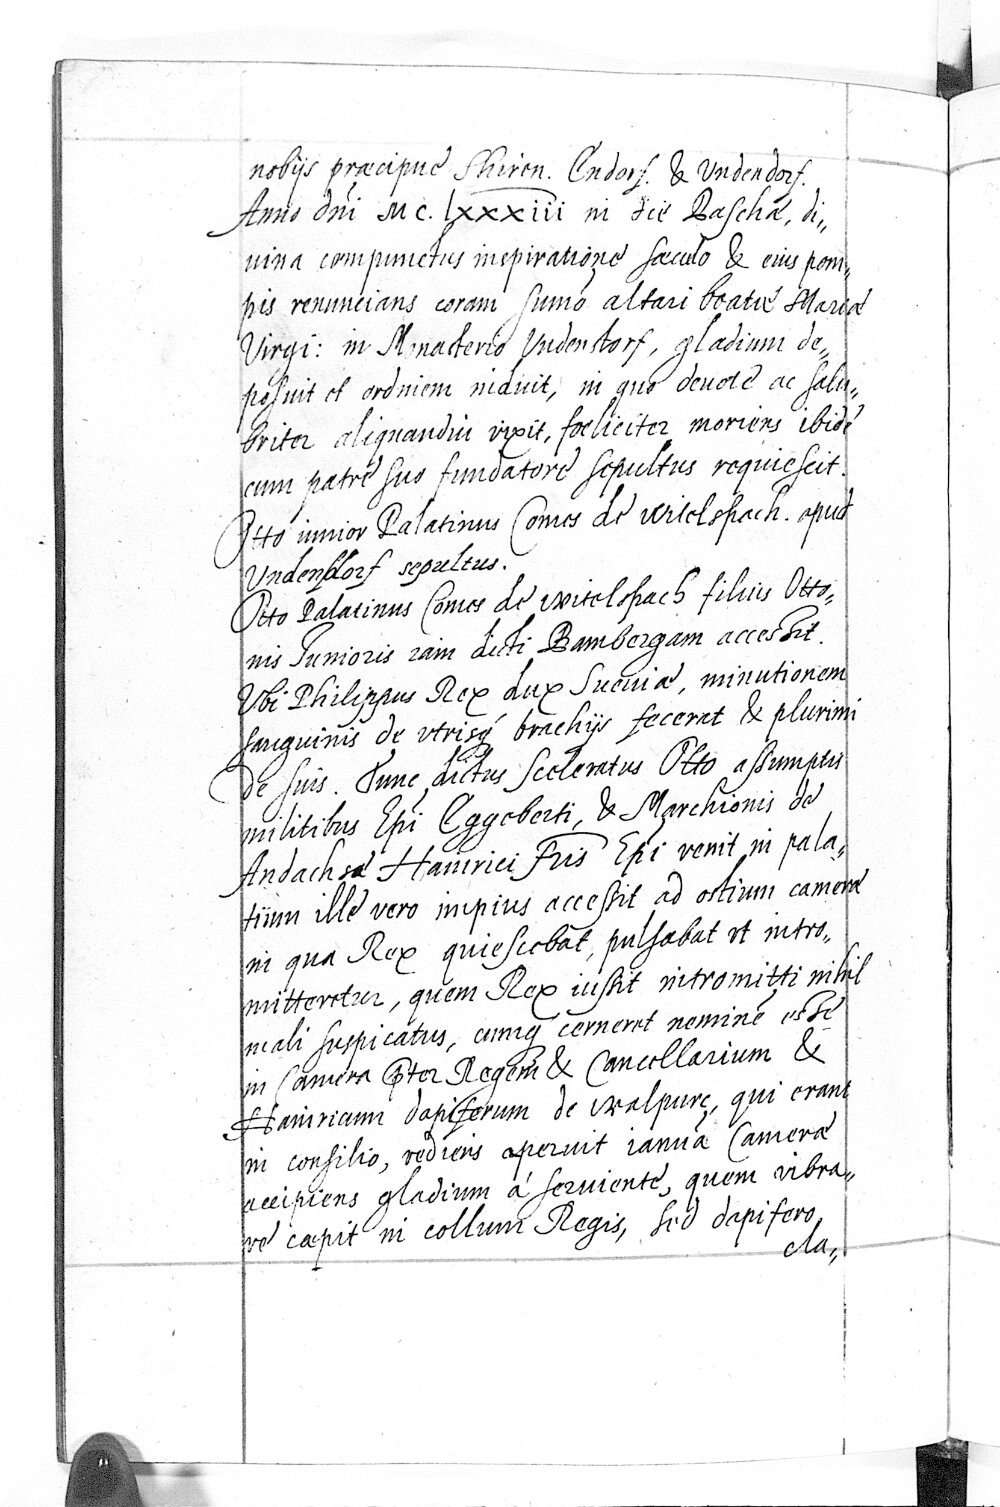 nobijs præcipuè Shiren. Endorf. & Undendorf.
Anno dni MC. lxxxiii in die Paschæ, di„
uina compunctus inspiratione sæculo & eius pom„
pis renuncians coram sumo altari beatæ Mariæ
Virgi: in Monasterio Vndenstorf, gladium de„
posuit et ordinem induit, in quo deuotè ac salu„
briter aliquandiu vixit, fœliciter moriens ibidē
cum patre suo fundatore sepultus requiescit.
Otto iunior Palatinus Comes de witelspach. apud
Vndenstorf sepultus.
Otto Palatinus Comes de witelspach filius Otto„
nis Iunioris iam dicti Bambergam accessit.
Vbi Philippus Rex dux Sueuiæ, minutionem
sanguinis de vtrisq brachijs fecerat & plurimi
de suis. Tunc dictus sceleratus Otto assumptis
militibus Epi Eggeberti, & Marchionis de
Andachsæ Hainrici Fris Epi venit in pala„
tium ille vero impius accessit ad ostium cameræ
in qua Rex quiescebat, pulsabat vt intro„
mitteretur, quem Rex iussit intromitti nihil
mali suspicatus, cumq cerneret neminē esse
in Camera pter Regem & Cancellarium &
Hainricum dapiferum de walpurc, qui erant
in consilio, rediens aperuit ianuā Cameræ
accipiens gladium à seruiente, quem vibra„
re cæpit in collum Regis, sed dapifero
cla„